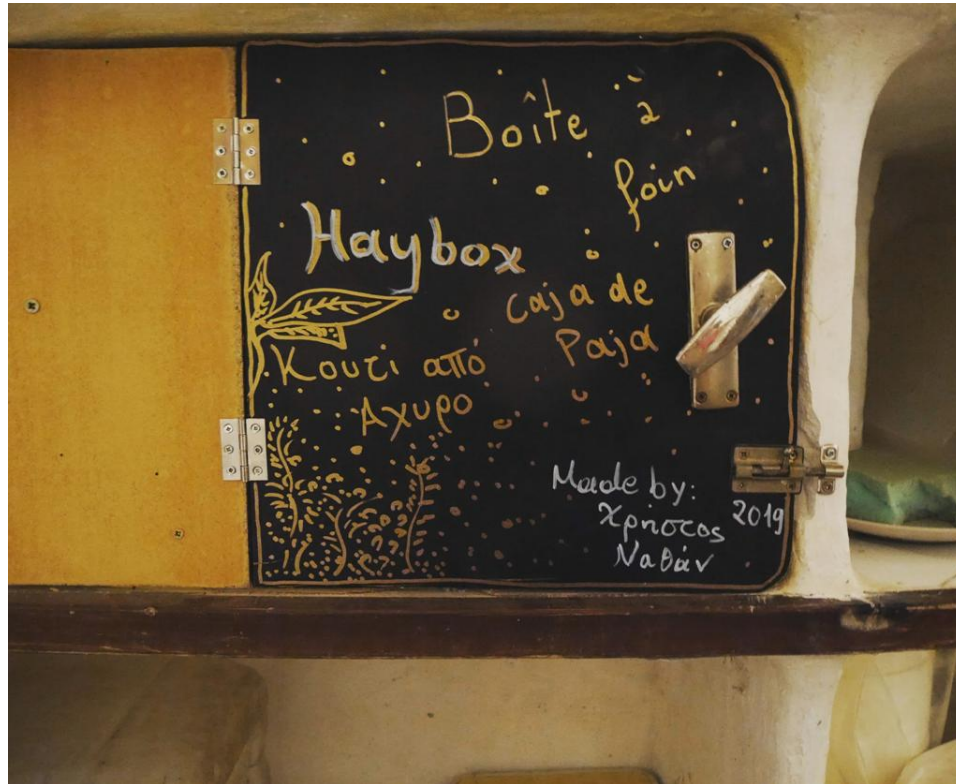 Boîte à
foin
Haybox
Caja de
Paja
Κουτί από
Άχυρο
Made by:
Χρήστος
Ναθάν
2019